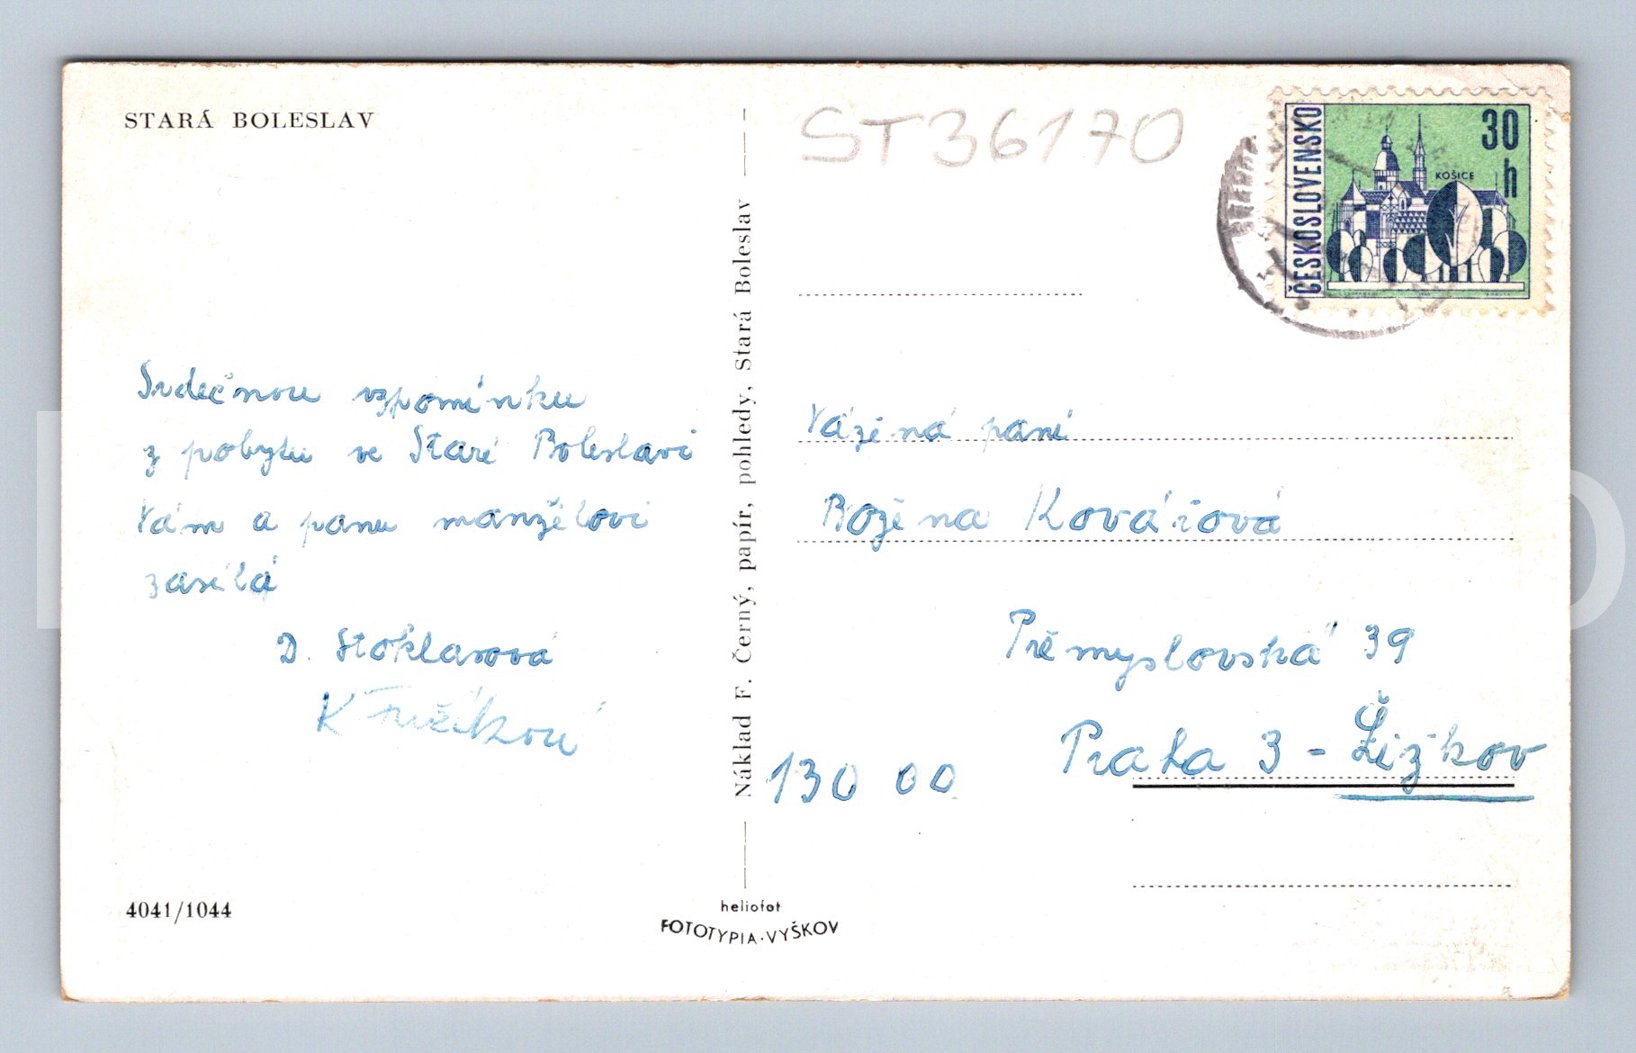 STARÁ BOLESLAV
Srdečnou vzpomínku
z pobytu ve Staré Boleslavi
Vám a panu manželovi
zasílá
D. Stoklasová
4041/1044
Náklad F. Černý, papír, pohledy, Stará Boleslav
heliofot
FOTOTYPIA-VYŠKOV
ST36170
ČESKOSLOVENSKO
30
h
KOŠICE
Vážená paní
Božena Kovářová
Přemyslovská 39
Praha 3 - Žižkov
130 00